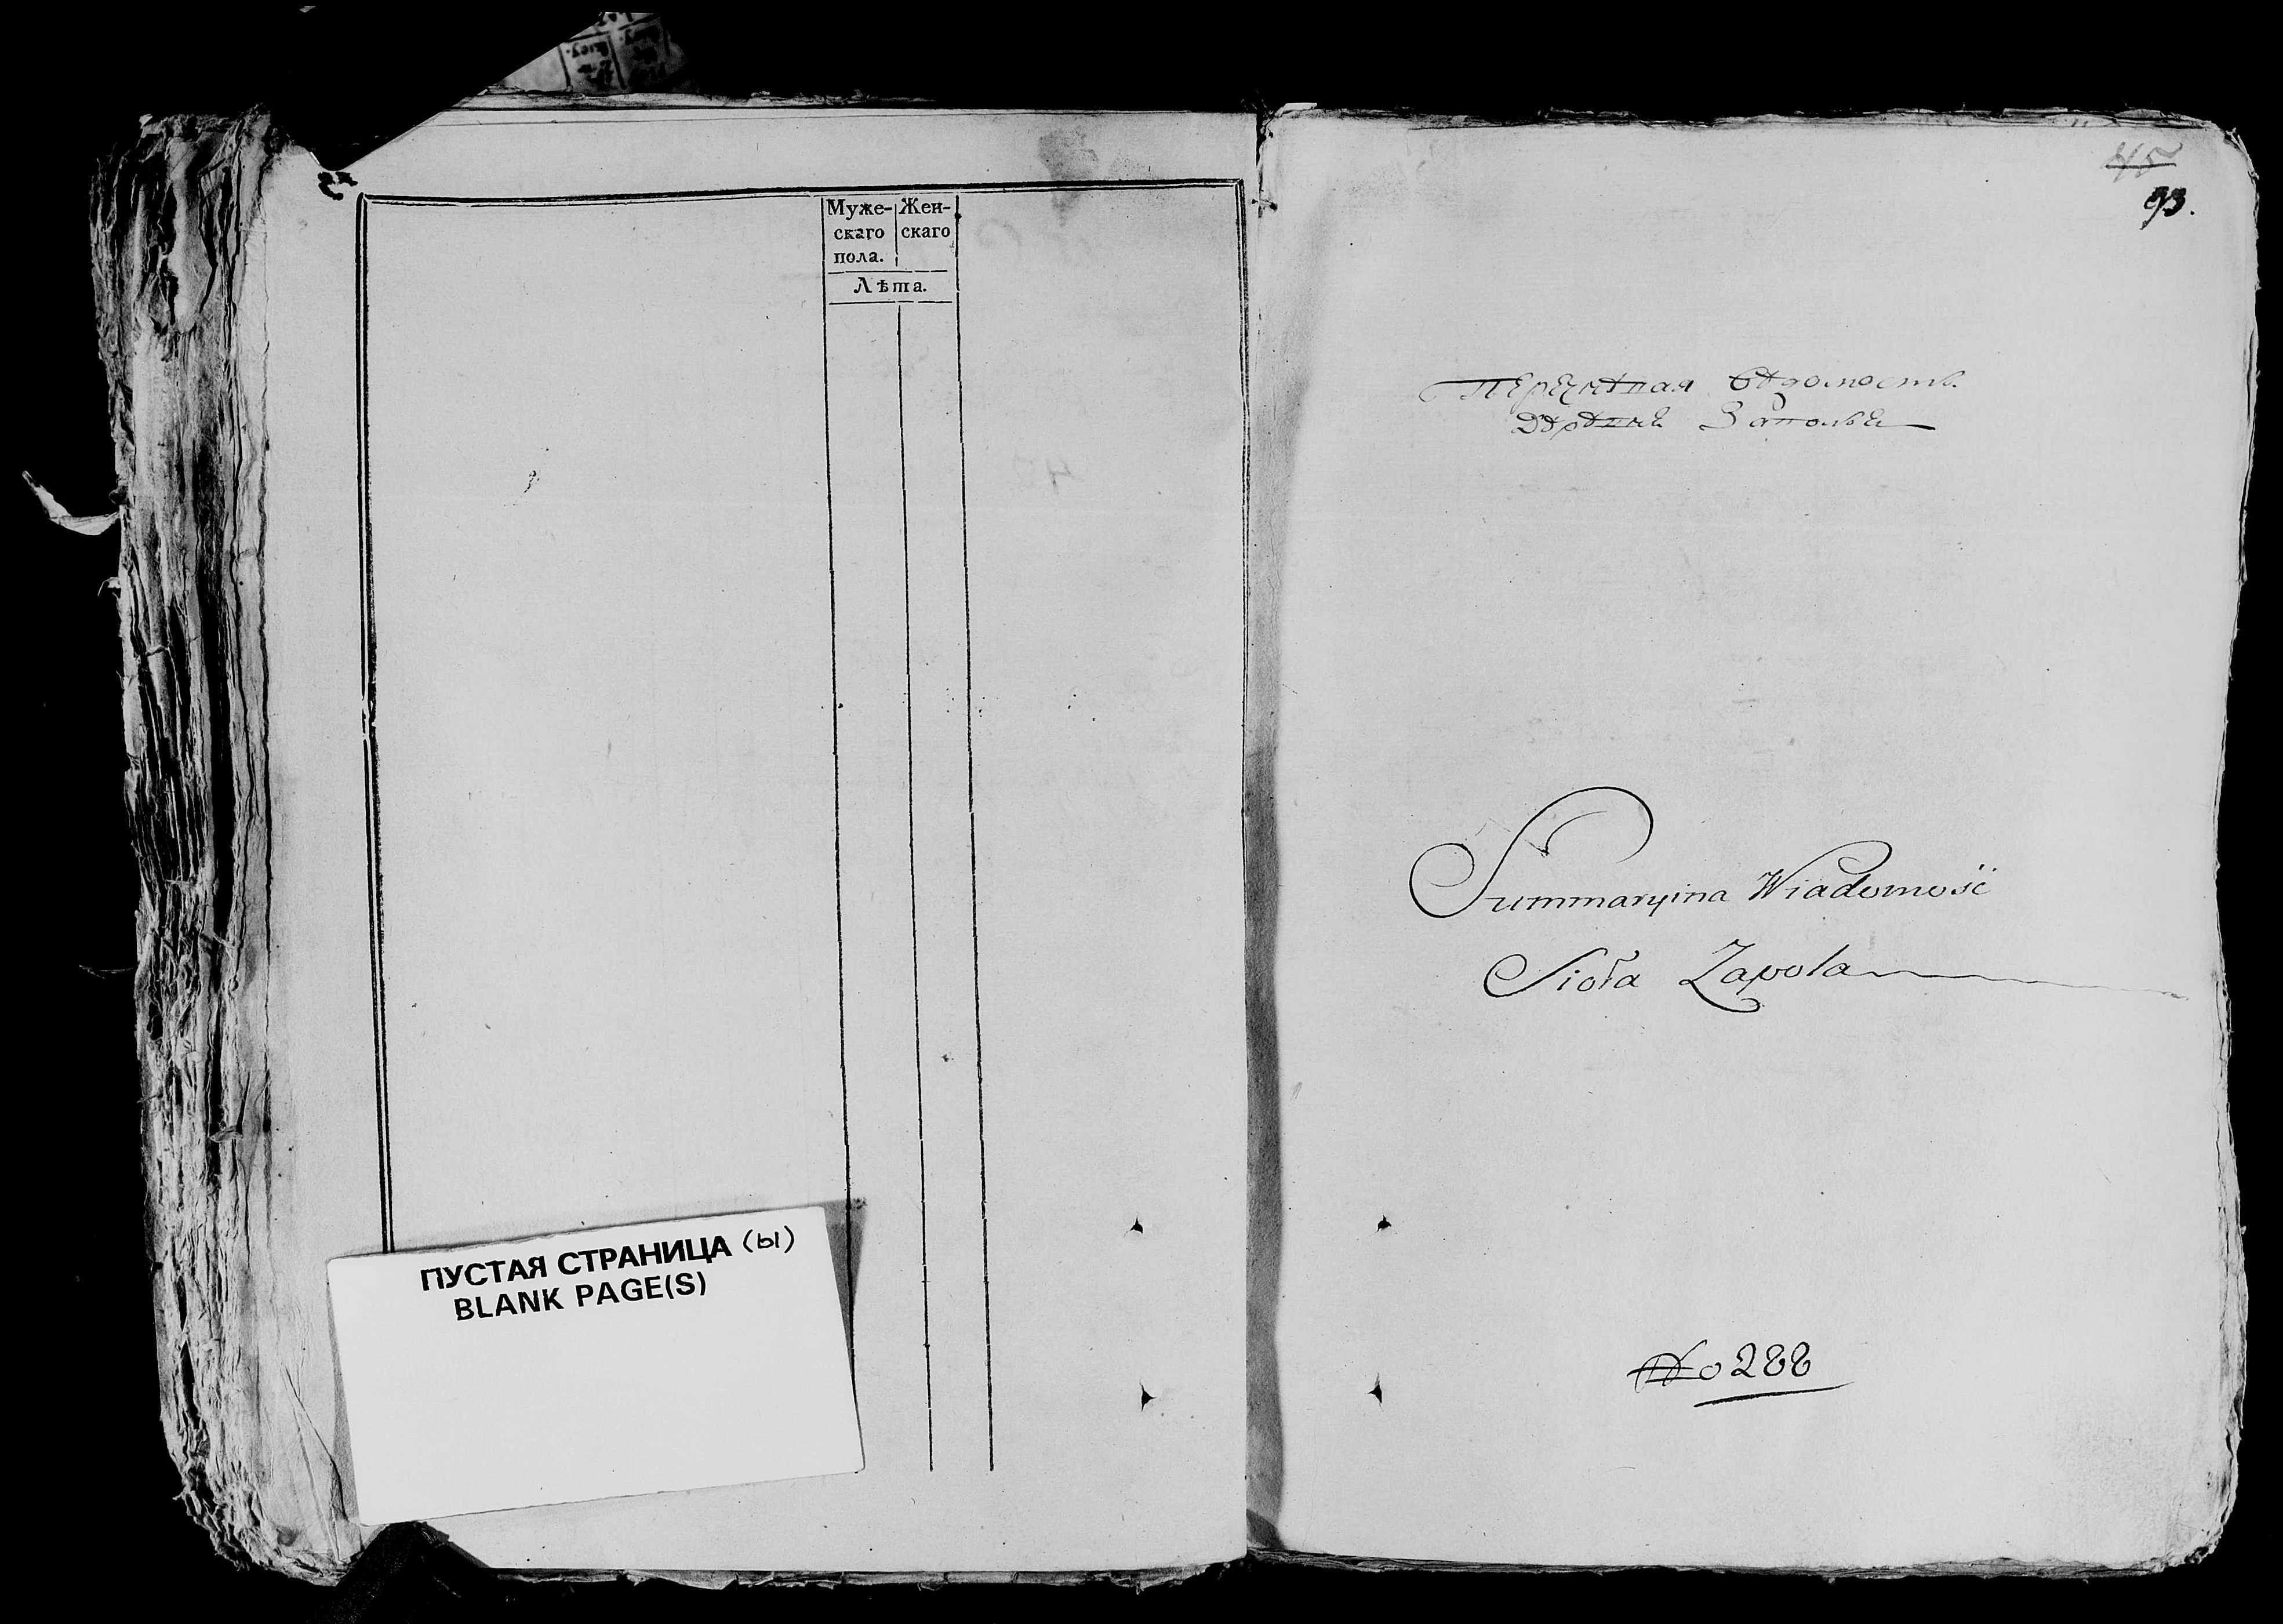 Муже- Жен-
скаго скаго
пола.
Лѣта.
ПУСТАЯ СТРАНИЦА (ы)
BLANK PAGE(S)
45
93.
Перечнѣвая вѣдомость
Дѣрѣвне Заполья
Summaryina Wiadomość
Sioła Zapola
No 288